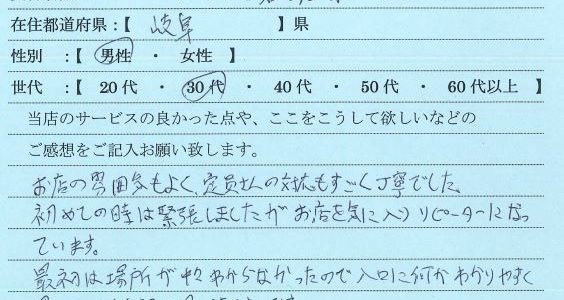 在住都道府県:【 岐阜 】県
性別 :【 男性 ・ 女性 】
世代 :【 20代 ・ 30代 ・ 40代 ・ 50代 ・ 60代以上 】
当店のサービスの良かった点や、ここをこうして欲しいなどの
ご感想をご記入お願い致します。
お店の雰囲気もよく、定員さんの対応もすごく丁寧でした。
初めての時は緊張しましたがお店を気に入りリピーターになっ
ています。
最初は場所が中々わからなかったので入口に何かわかりやすく